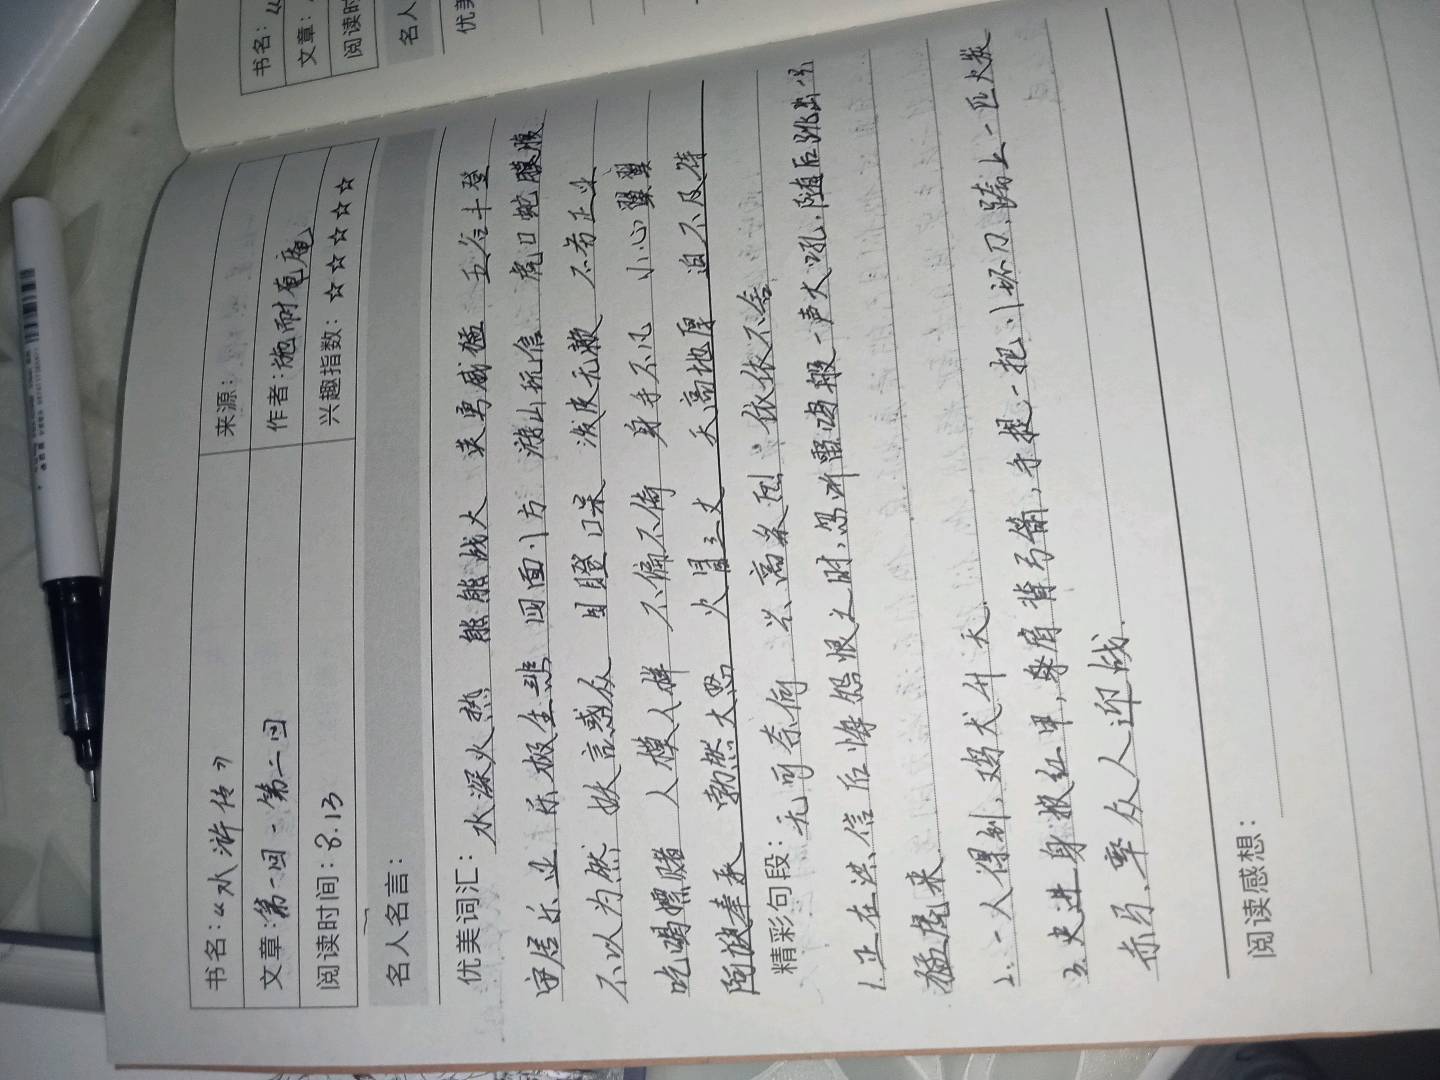 书名：《水浒传》
来源：
文章：第一回-第二回
作者：施耐庵
阅读时间：8.13
兴趣指数：☆☆☆☆☆
名人名言：
优美词汇：水深火热 熊熊战火 英勇威猛 五谷丰登
安居乐业 乐极生悲 四面八方 游山玩信 虎口蛇腹
不以为然 妖言惑众 目瞪口呆 泼皮无赖 不务正业
吃喝嫖赌 人模人样 不偏不倚 身手不凡 小心翼翼
阿谀奉承 勃然大怒 火冒三丈 天高地厚 迫不及待
精彩句段：无可奈何 兴高采烈 依依不舍
1.正在洪信后悔怨恨之时,忽听雷鸣般一声大吼,随后跳出
猛虎来
2.一人得利,鸡犬升天.
3.史进身披红甲,身肩背弓箭,手提一把八环刀,骑上一匹火炭
赤马,率众人迎战.
阅读感想：
书名：《
文章：
阅读时
名人
优美